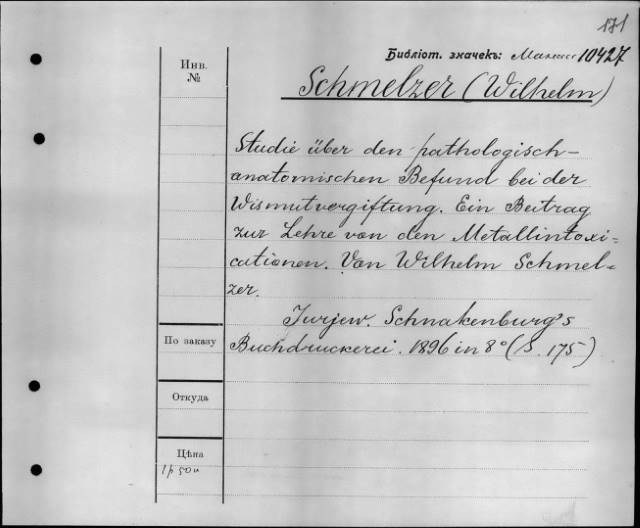 171
Библіот. значекъ: 10427
Инв.
№
Schmelzer (Wilhelm)
Studie über den pathologisch-
anatomischen Befund bei der
Wismutvergiftung. Ein Beitrag
zur Lehre von den Metallintoxi=
cationen. Von Wilhelm Schmel=
zer.
Jurjew. Schnakenburg's
Buchdruckerei. 1896 in 8° (S. 175)
По заказу
Откуда
Цѣна
1 р 50 к